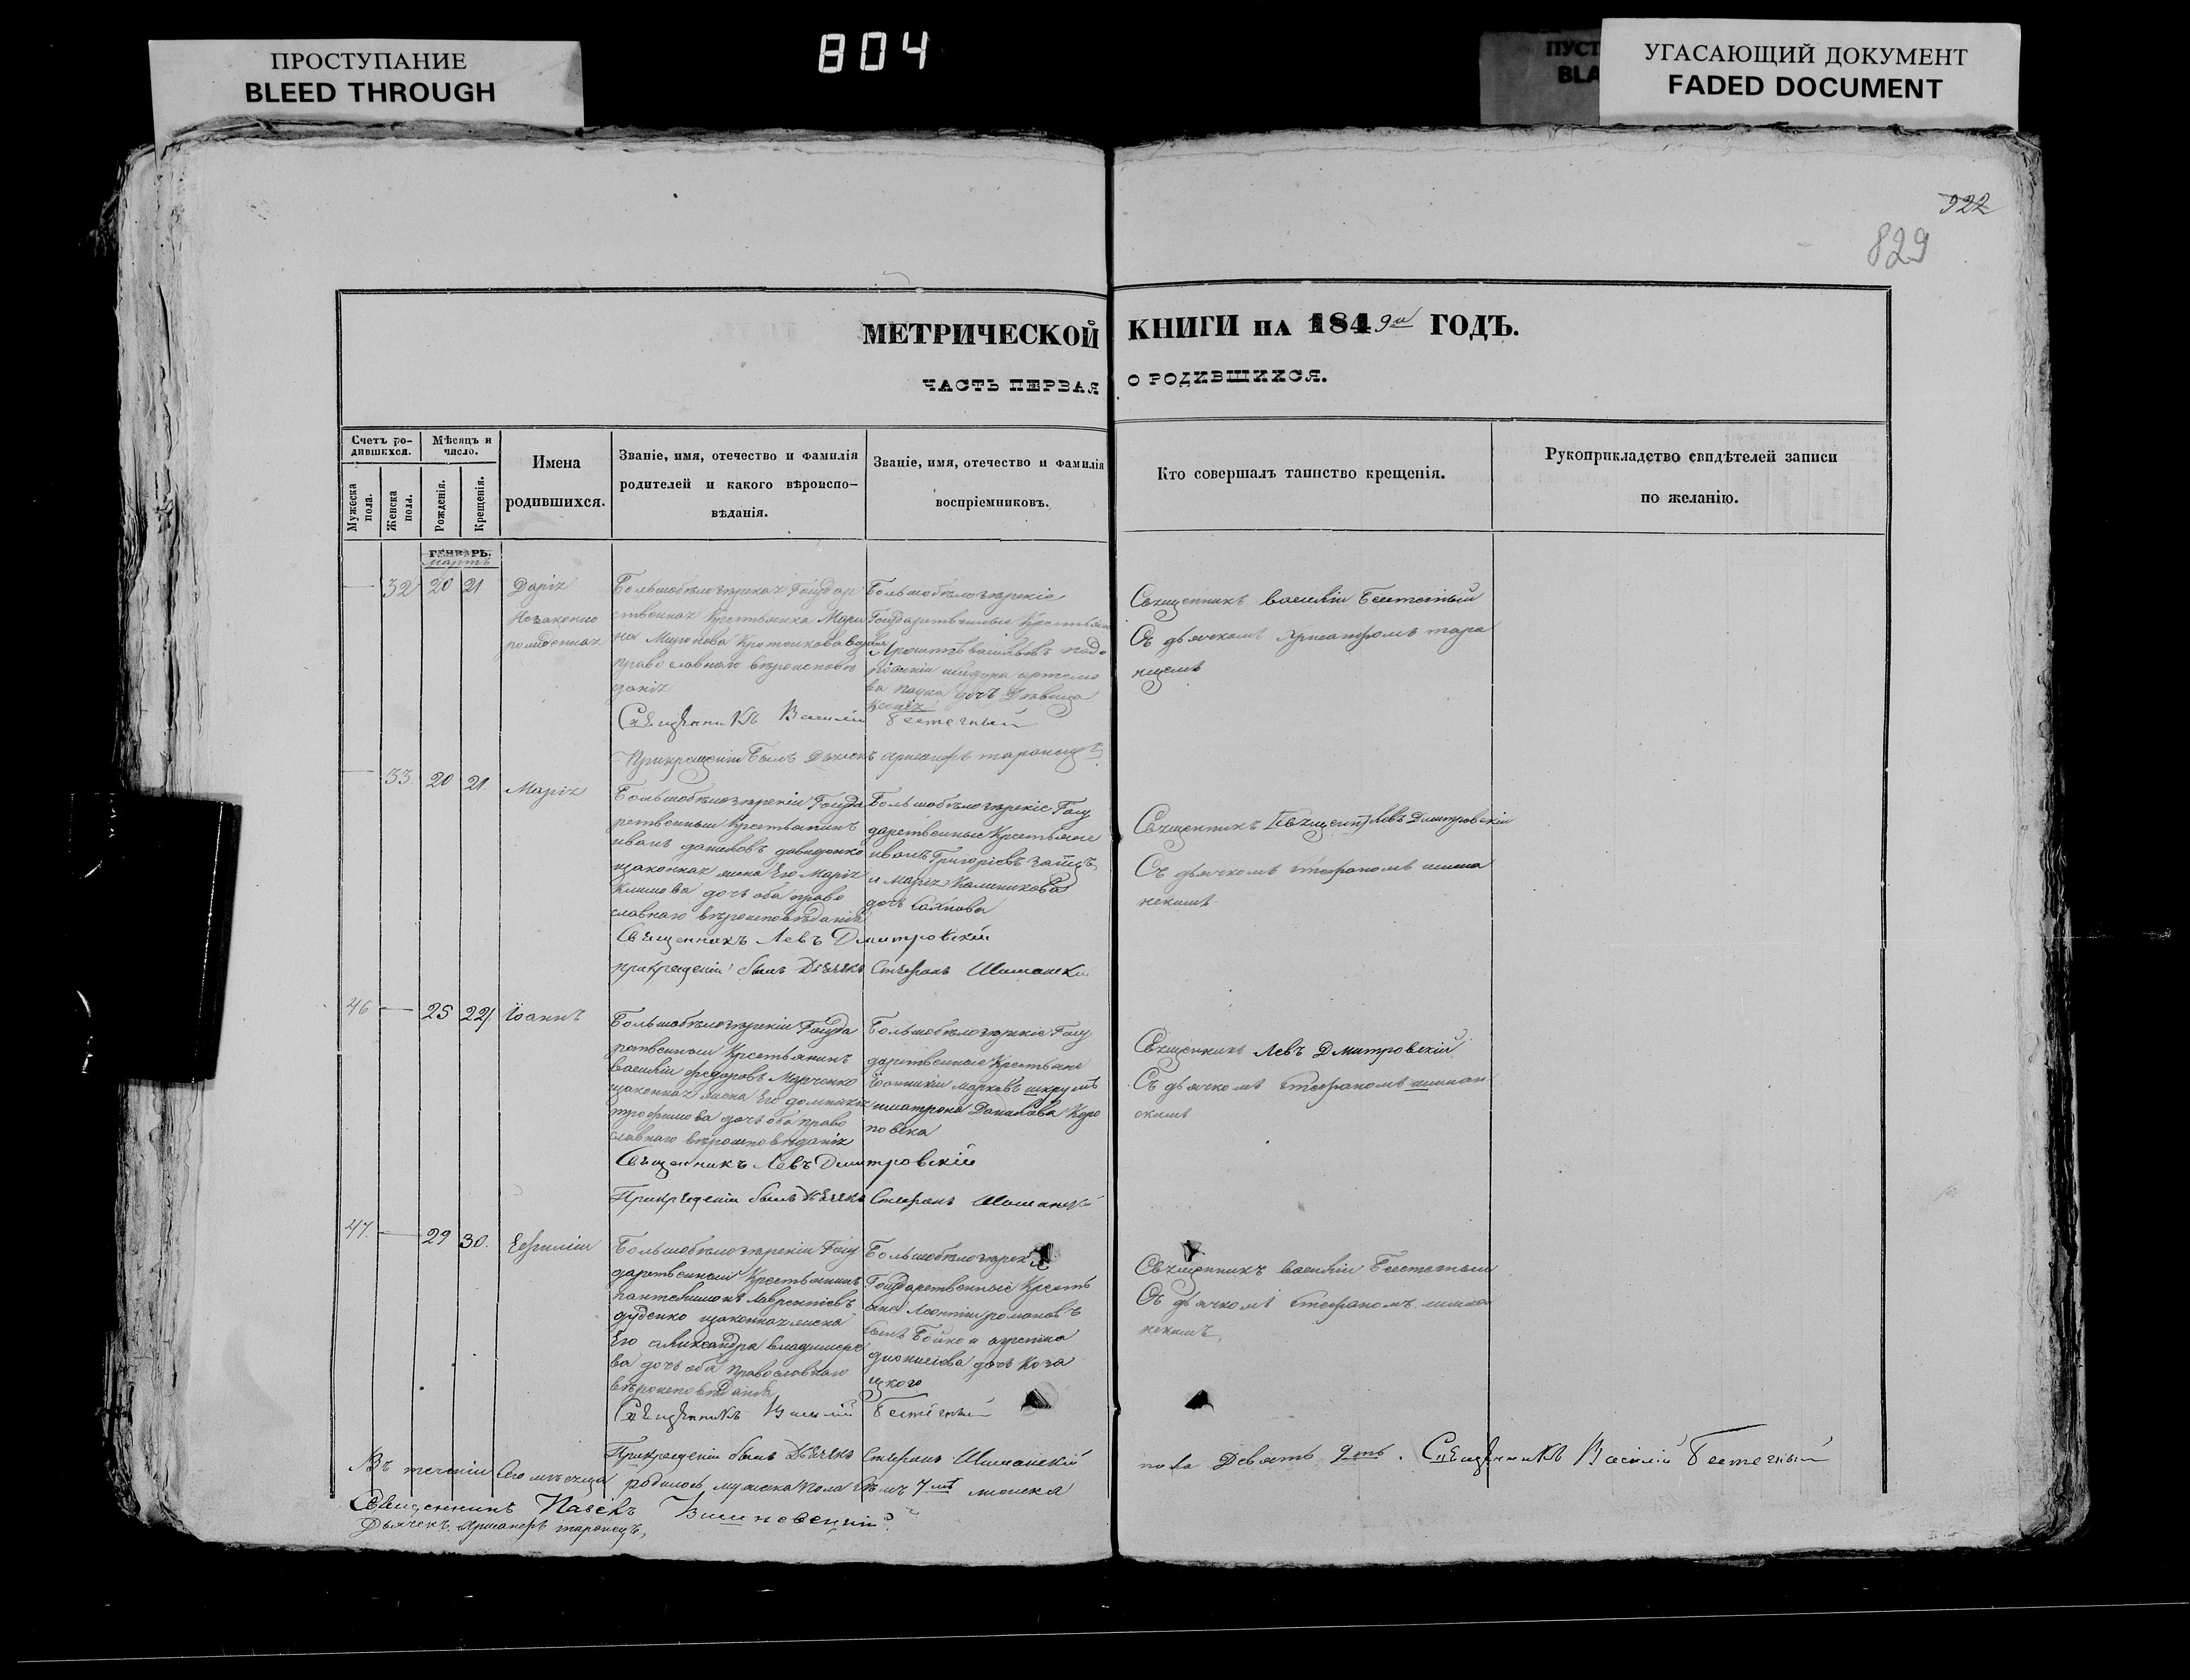 ПРОСТУПАНИЕ
BLEED THROUGH
804
ПУСТ
BLA
УГАСАЮЩИЙ ДОКУМЕНТ
FADED DOCUMENT
922
829
МЕТРИЧЕСКОЙ КНИГИ НА 1849й ГОДЪ.
ЧАСТЬ ПЕРВАЯ О РОДИВШИХСЯ.
Счетъ ро-
дившихся.
Мужеска пола.
Женска пола.
Мѣсяцъ и
число.
Рожденія.
Крещенія.
Имена
родившихся.
Званіе, имя, отечество и фамилія
родителей и какого вѣроиспо-
вѣданія.
Званіе, имя, отечество и фамилія
воспріемниковъ.
Кто совершалъ таинство крещенія.
Рукоприкладство свидѣтелей записи
по желанію.
ГЕНВАРЬ.
Мартъ
32 20 21
Дарія
Незаконно
рожденная
Большобѣлозерская Государ
ственная Крестьянка Мари
на Миронова
православнаго вѣроисповѣ
данія
Священникъ Василій Бестечный
Большобѣлозерскіе
Государственные Крестьян
дочь Дѣвица
При крещеніи былъ Дьячекъ Арианфъ таранецъ
Священникъ василій Бестечный
Съ дьячкомъ Арианфомъ тара
нцемъ
33. 20 21.
Марія
Большобѣлозерскій Госуда
рственный Крестьянинъ
иванъ даниловъ давиденко
изаконная жена Его Марія
Климова дочь оба право
славнаго вѣроисповѣданія
Священникъ Левъ Дмитровскій
При крещеніи былъ Дьячекъ Стефанъ Шиманскі
Большобѣлозерскіе Госу
дарственные Крестьяне
иванъ Григоріевъ Заецъ
и Марія Калиникова
дочь
Священникъ Левъ Димитровскій
Съ дьячкомъ стефаномъ шима
нскимъ
46 25 27
Іоаннъ
Большобѣлозерскій Госуда
рственный Крестьянинъ
василій федоровъ Марченко
изаконная жена Его домникія
трофимова дочь оба право
славнаго вѣроисповѣданія
Священникъ Левъ Дмитровскій
При крещеніи былъ Дьячекъ Стефанъ Шиманскі
Большобѣлозерскіе Госу
дарственные Крестьяне
Іоанникій Марковъ шкрумъ
иматрона Данилова Коро
повска
Священникъ Левъ Дмитровскій
Съ дьячкомъ стефаномъ шиман
скимъ
47. 29 30.
Большобѣлозерскій Госу
дарственный Крестьянинъ
пантелимонъ лаврентіевъ
дуденко изаконная жена
Его александра владимеро
ва дочь оба Православнаго
вѣроисповѣданія
Священникъ Василій Бестечный
При крещеніи былъ Дьячекъ Стефанъ Шиманскій
Большобѣлозерск
Государственные Кресть
яне Леонтій романовъ
сынъ Бойко и агрепина
дионисіева дочь Коза
цкого
Священникъ василій Бестечный
Съ дьячкомъ стефаномъ шима
нскимъ
Въ теченіи сего мѣсяца родилось мужеска пола семь 7мъ женска пола девять 9ть. Священникъ Василій Бестечный
Священникъ Павелъ Вишневецкій
Дьячекъ Арианфъ таранецъ